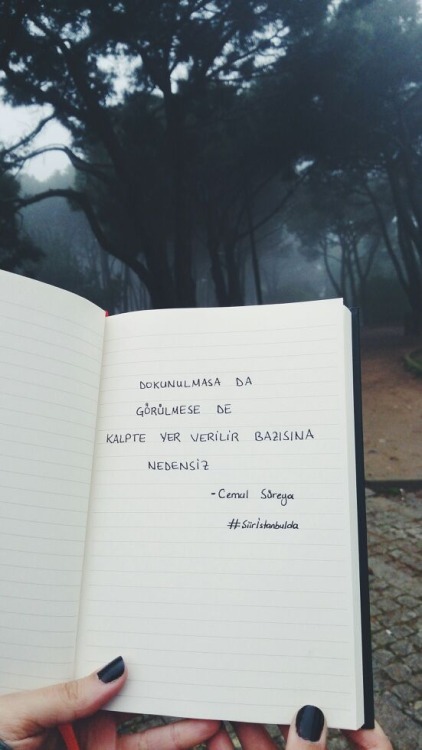 DOKUNULMASA DA
GÖRÜLMESE DE
KALPTE YER VERİLİR BAZISINA
NEDENSİZ
-Cemal Süreya
#Siiristanbulda